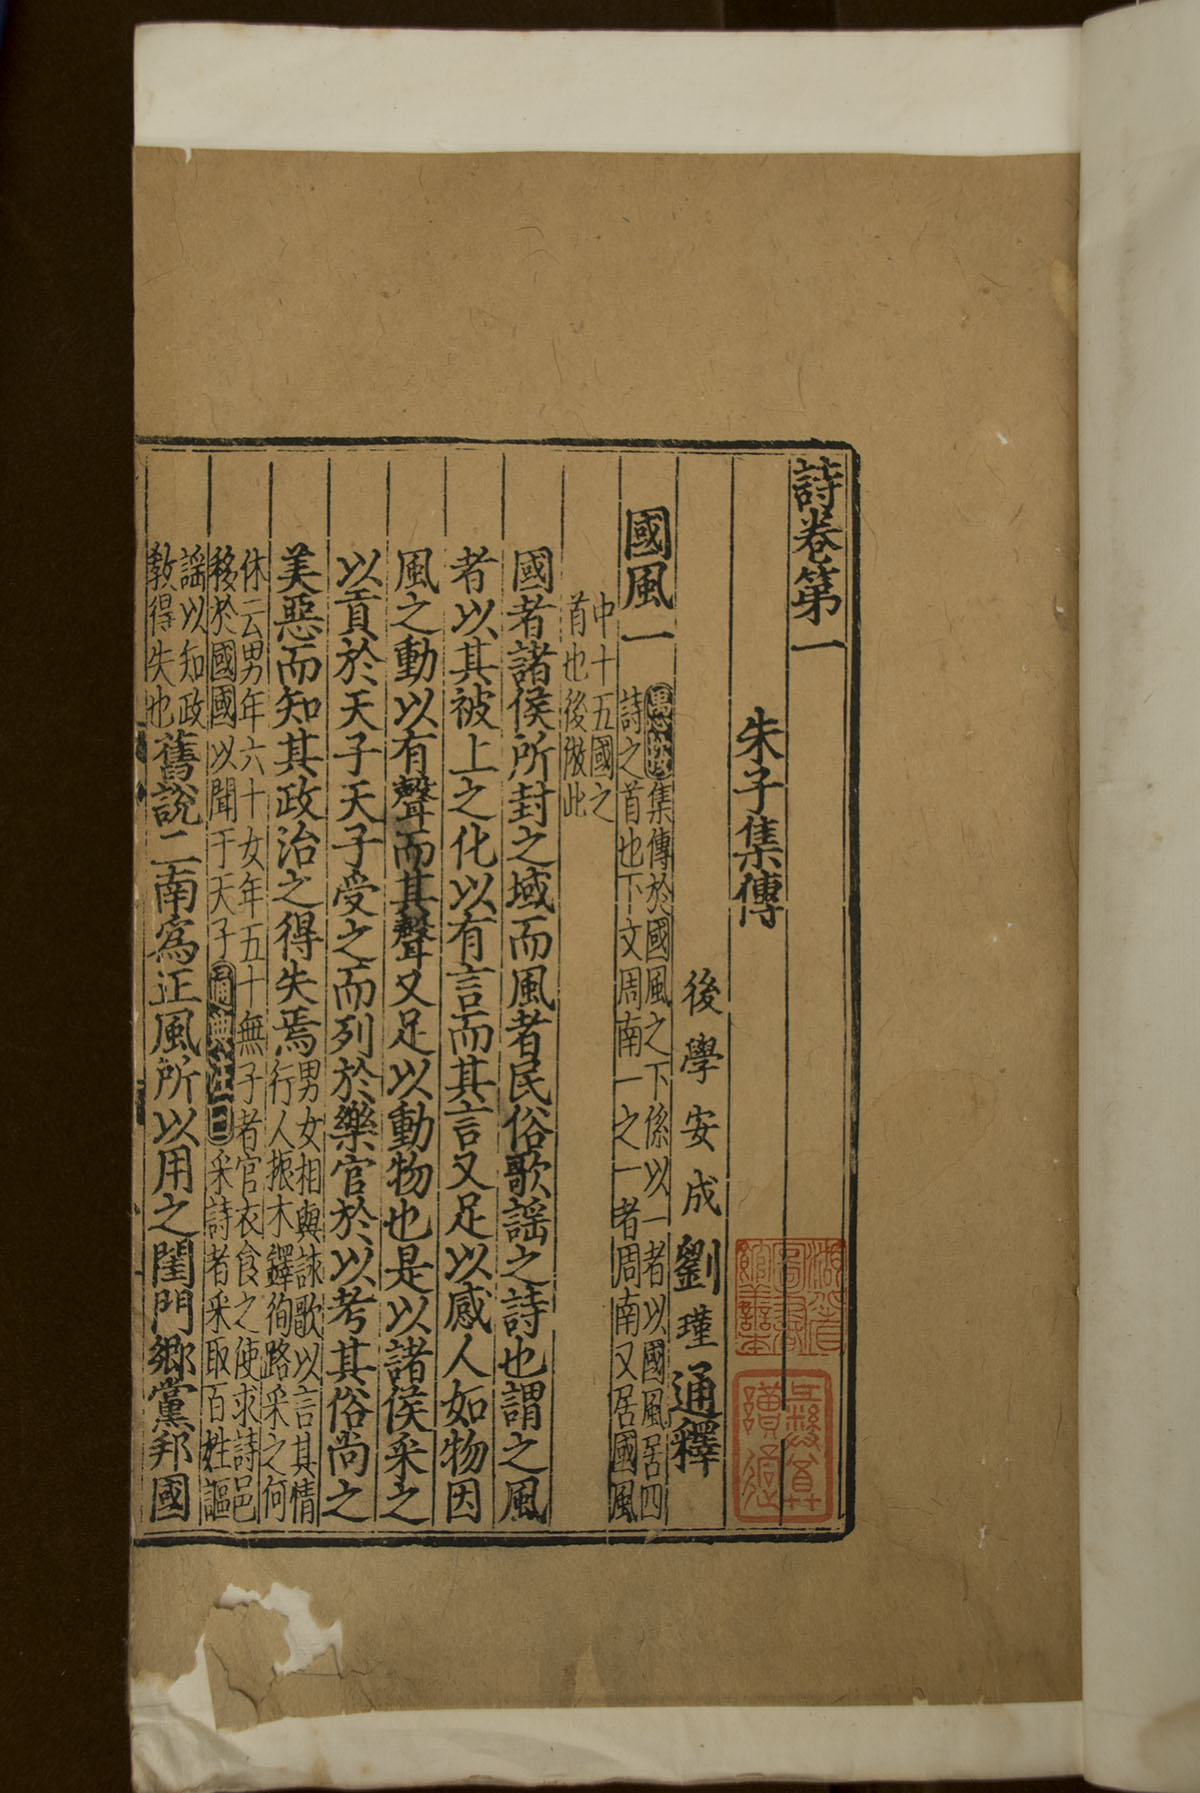 詩卷第一
朱子集傳
後學安成劉瑾通釋
國風一
愚按集傳於國風之下係以一者以國風居四
詩之首也下文周南一之一者周南又居國風
中十五國之
首也後倣此
國者諸侯所封之域而風者民俗歌謡之詩也謂之風
者以其被上之化以有言而其言又足以感人如物因
風之動以有聲而其聲又足以動物也是以諸侯采之
以貢於天子天子受之而列於樂官於以考其俗尚之
美惡而知其政治之得失焉
男女相與詠歌以言其情
行人振木鐸徇路采之何
休云男年六十女年五十無子者官衣食之使求詩邑
移於國國以聞于天子通典注曰采詩者采取百姓謳
謡以知政
教得失也
舊說二南爲正風所以用之閨門鄉黨邦國